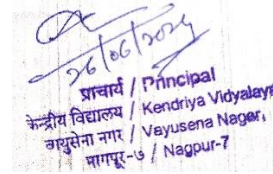 26/06/2024
प्राचार्य / Principal
केन्द्रीय विद्यालय / Kendriya Vidyalaya
वायुसेना नगर / Vayusena Nagar,
नागपूर-७ / Nagpur-7